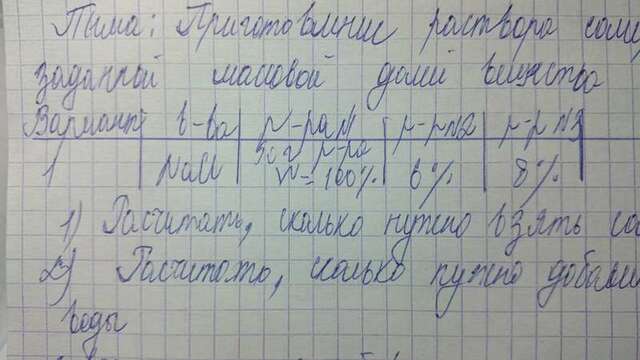 Тема: Приготовление раствора соли
заданной массовой долей вещества
Вариант в-во р-ра№1 р-р№2 р-р№3
1 NaCl 50 г р-ра W=100% 6% 8%
1) Расчитать, сколько нужно взять со
2) Расчитать, сколько нужно добави
воды